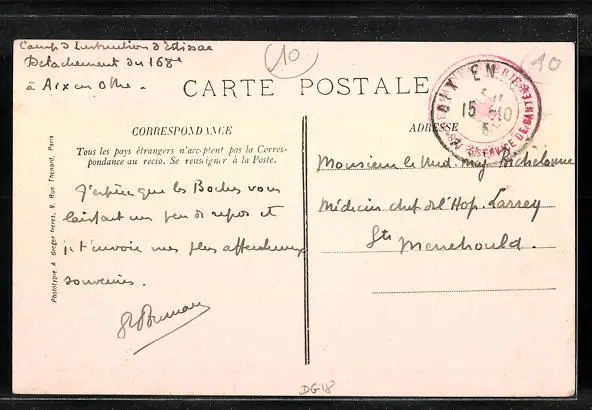 Camp d'Instruction d'Edissac
Détachement du 168e
à Aix en Othe.
10
10
CARTE POSTALE
CORRESPONDANCE
Tous les pays étrangers n'acceptent pas la Corres-
pondance au recto. Se renseigner à la Poste.
ADRESSE
AIX EN
15
SERVICE DE
Monsieur le Med. Maj.
Médecin chef de l'Hop. Larrey
Ste Menehould.
J'espère que les Boches vous
laissent un peu de repos et
je t'envoie mes plus affectueux
souvenirs.
Phototypie A. Breger frères, 9, Rue Thénard, Paris
DG18